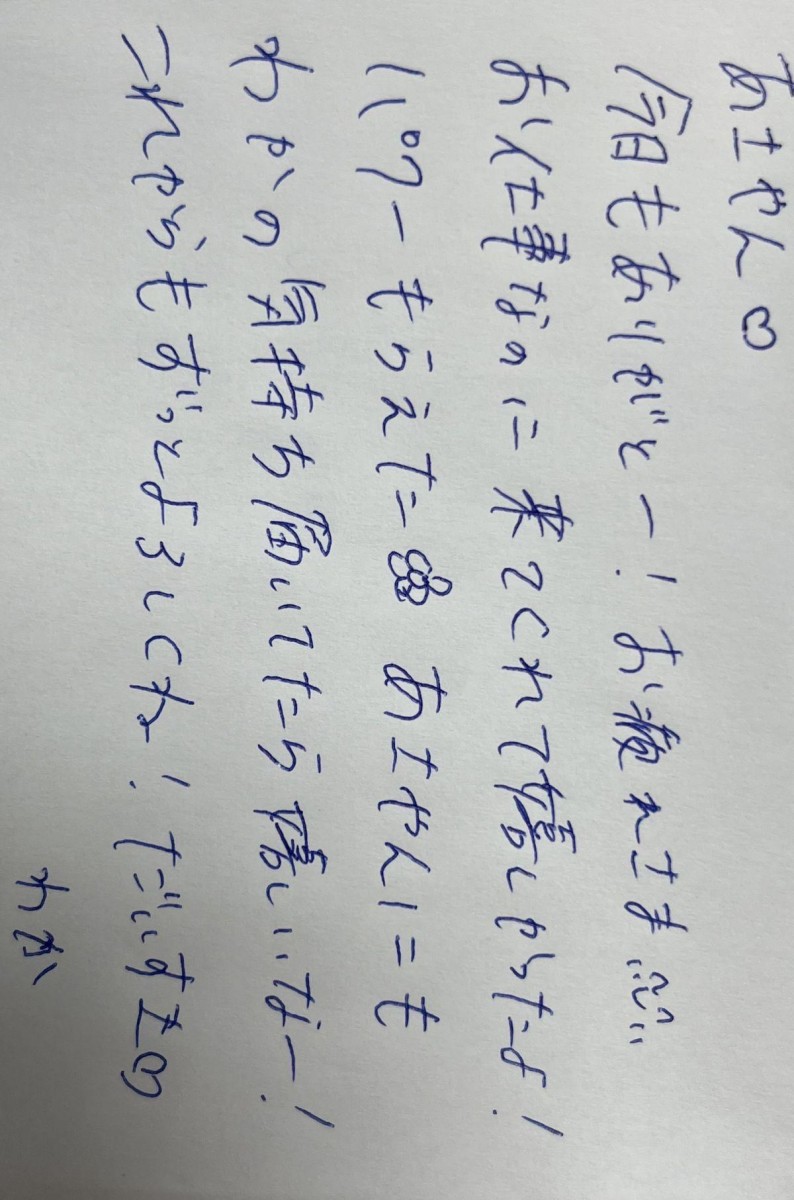 あきやん♡
今日もありがとー！お疲れさま
お仕事なのに来てくれて嬉しかったよ！
パワーもらえた あきやんにも
わかの気持ち届いてたら嬉しいなー！
これからもずっとよろしくね！だいすき♡
わか